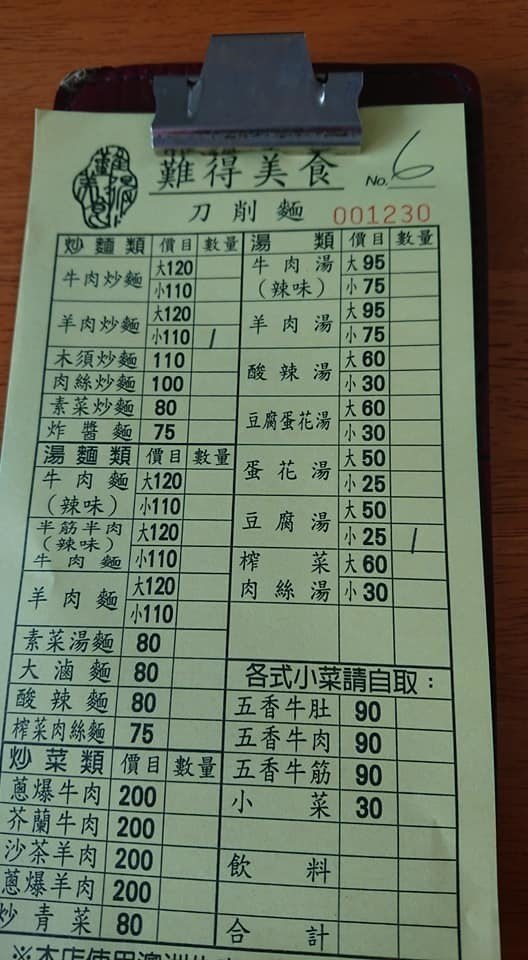 難得美食
No. 6
刀削麵 001230
炒麵類 價目 數量
牛肉炒麵 大120
小110
羊肉炒麵 大120
小110 /
木須炒麵 110
肉絲炒麵 100
素菜炒麵 80
炸醬麵 75
湯麵類 價目 數量
牛肉麵(辣味) 大120
小110
半筋半肉(辣味)牛肉麵 大120
小110
羊肉麵 大120
小110
素菜湯麵 80
大滷麵 80
酸辣麵 80
榨菜肉絲麵 75
炒菜類 價目 數量
蔥爆牛肉 200
芥蘭牛肉 200
沙茶羊肉 200
蔥爆羊肉 200
炒青菜 80
湯類 價目 數量
牛肉湯(辣味) 大95
小75
羊肉湯 大95
小75
酸辣湯 大60
小30
豆腐蛋花湯 大60
小30
蛋花湯 大50
小25
豆腐湯 大50
小25 /
榨菜肉絲湯 大60
小30
各式小菜請自取：
五香牛肚 90
五香牛肉 90
五香牛筋 90
小菜 30
飲料
合計
※本店使用澳洲牛